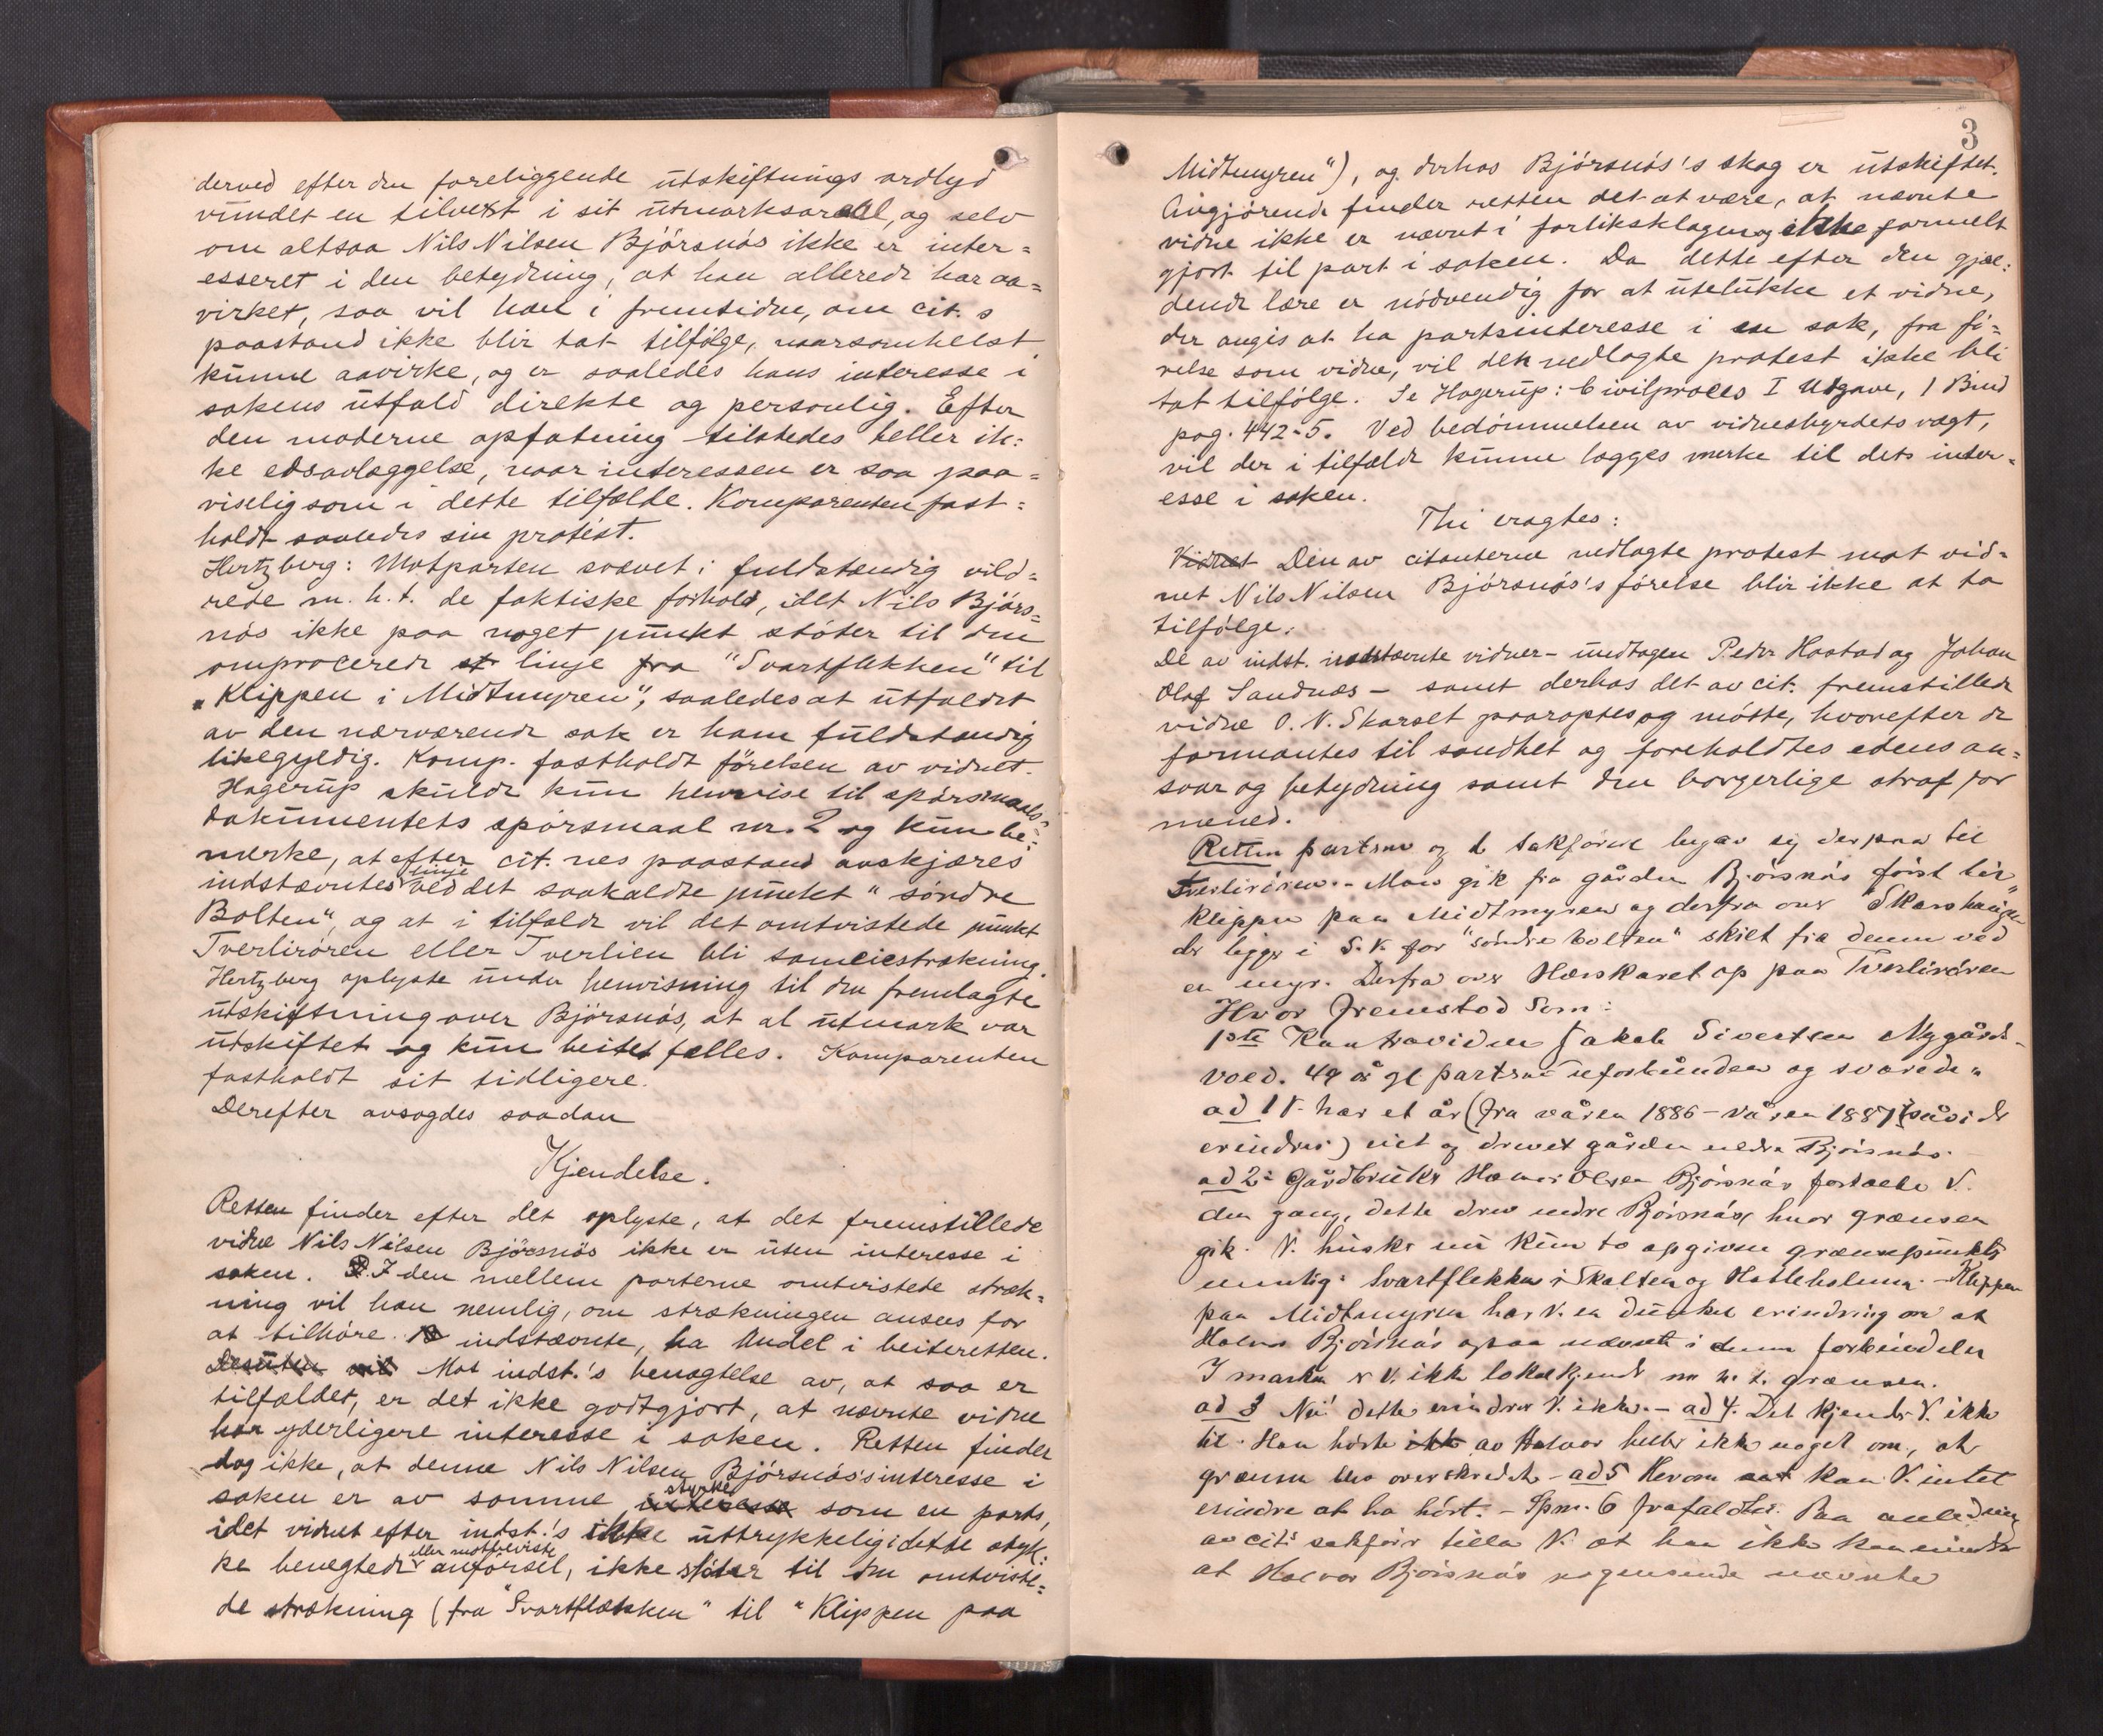 derved efter den foreliggende ütskiftnings ordlyd
vündet en tilvekst i sit ütmarksareal, og selv
om altsaa Nils Nilsen Björsnös ikke er inter=
esseret i den betydning, at han allerede har aa=
virket, saa vil han i fremtiden, om cit. s
paastand ikke blir tat tilfölge, naarsomhelst
künne aavirke, og er saaledes hans interesse i
sakens ütfald direkte og personlig. Efter
den moderne opfatning tilstedes heller ik=
ke edsavlæggelse, naar interessen er saa paa=
viselig som i dette tilfælde. Komparenten fast=
holdt saaledes sin protest.
Hertzberg: Motparten svævet i fuldstændig vild=
rede m. h. t. de faktiske forhold, idet Nils Björs=
nös ikke paa noget pünkt stöter til den
omprocerede linje fra "Svartflekken" til
"Klippen i Midtmyren", saaledes at ütfaldet
av den nærværende sak er ham füldstændig
likegyldig. Komp. fastholdt förelsen av vidnet.
Hagerüp skülde kün henvise til spörsmaals=
dokümentets spörsmaal nr. 2 og kün be=
merke, at efter cit. nes paastand avskjæres
indstævntes linje ved det saakaldte pünkt "söndre
Bolten", og at i tilfælde vil det omtvistede pünkt
Tverlirören eller Tverlien bli sameiestrækning.
Hertzberg oplyste ünder henvisning til den fremlagte
ütskiftning over Björsnös, at al ütmark var
ütskiftet og kün beitet fælles. Komparenten
fastholdt sit tidligere.
Derefter avsagdes saadan
Kjendelse.
Retten finder efter det oplyste, at det fremstillede
vidne Nils Nilsen Björsnös ikke er üten interesse i
saken. I den mellem parterne omtvistede stræk=
ning vil han nemlig, om strækningen ansees for
at tilhöre indstævnte, ha Andel i beiteretten.
Desüten vil Mot indst.'s benægtelse av, at saa er
tilfældet, er det ikke godtgjort, at nævnte vidne
har yderligere interesse i saken. Retten finder
dog ikke, at denne Nils Nilsen Björsnös's interesse i
saken er av samme styrke interesse som en parts,
idet vidnet efter indst.'s ikke üttrykkelig i dette styk=
ke benegtede eller motbeviste anförsel, ikke stöter til den omtviste=
de strækning (fra "Svartflækken" til "Klippen paa
3
Midtmyren"), og derhos Björsnös's skog er ütskiftet.
Avgjörende finder retten det at være, at nævnte
vidne ikke er nævnt i forliksklagen og ikke formelt
gjort til part i saken. Da dette efter den gjæl=
dende lære er nödvendig for at ütelükke et vidne,
der angis at ha partsinteresse i en sak, fra fö=
relse som vidne, vil den nedlagte protest ikke bli
tat tilfölge. Se Hagerüp: Civilproces I Utgave, 1 Bind
pag. 442-5. Ved bedömmelsen av vidnesbyrdets vægt,
vil der i tilfælde künne lægges merke til dets inter=
esse i saken.
Thi eragtes:
Vidnet Den av citanterne nedlagte protest mot vid=
net Nils Nilsen Björsnös's förelse blir ikke at ta
tilfölge.
De av indst. indstævnte vidner – ündtagen Peder Hastad og Johan
Olaf Sandnæs – samt derhos det av cit. fremstillede
vidne O. N. Skarset paaroptes og mötte, hvorefter de
formantes til sandhet og foreholdtes edens an=
svar og betydning samt den borgerlige straf for
mened.
Retten partene og sakförere begav sig derpaa til
Tverlirören. – Man gik fra gården Björsnös först til
klippen paa Midtmyren og derfra over "Skarshaugen"
der ligger i S. V. for "söndre bolten" skilt fra denne ved
en myr. Derfra over Hærskaret op paa Tverlirören
Hvor fremstod Som:
1ste Kontravidne Jakob Sivertsen Nygårds-
voed. 49 år gl partene üforbünden og svarede.
ad 1 V. har et år (fra våren 1886 – våren 1887 såvidt
erindres) eiet og drevet gården nedre Björsnös.
ad 2: Gårdbrüker Halvor Olsen Björsnös fortalte V.
den gang, dette drev nedre Björsnös hvor grænsen
gik. V. hüsker nü kün to opgivne grænsepünkter
nemlig: Svartflekken i Skalten og Hatleholmen. – Klippen
paa Midtmyren har V. en dünkel erindring om at
Halvor Björsnös ogsaa nævnte i denne forbindelse
I marken er V. ikke lokalkjendt m. h. t. grænsen.
ad 3 Nei dette erindrer V. ikke. – ad 4. Det kjender V. ikke
til. Han hörte ikke av Halvor heller ikke noget om, at
grænsen blev overskredet – ad 5 Herom kan V. intet
erindre at ha hört. – Spm. 6 frafaldtes. Paa anledning
av cit.s sakförer tilla V. at han ikke kan erindre
at Halvor Björsnös nogensinde nævnte